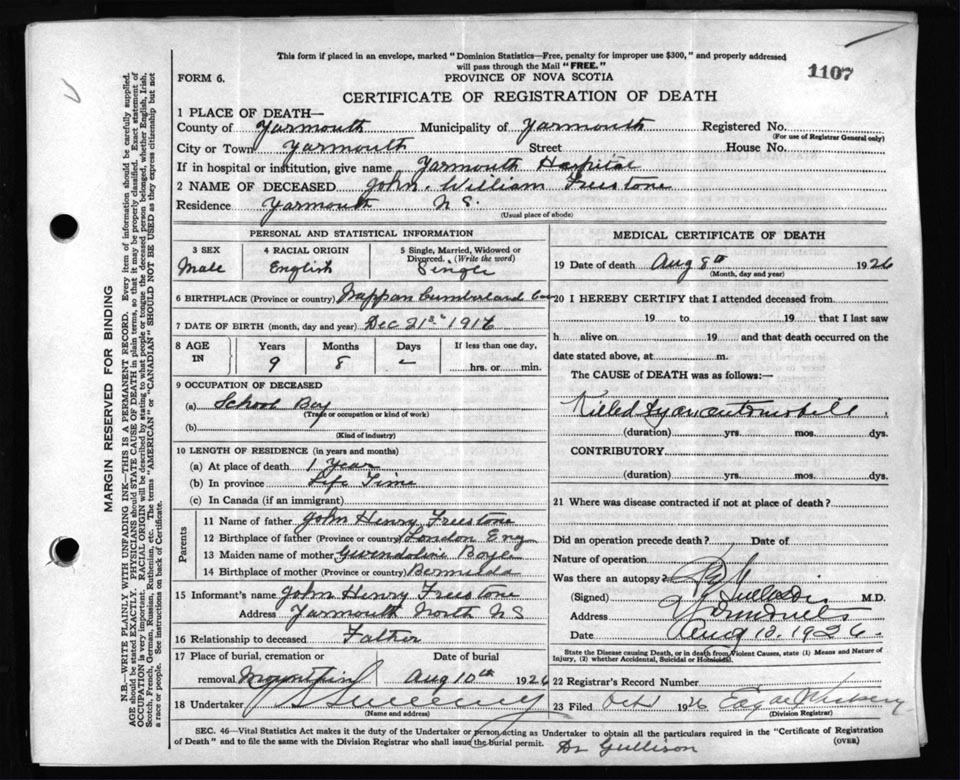 This form if placed in an envelope, marked "Dominion Statistics—Free, penalty for improper use $300," and properly addressed
will pass through the Mail "FREE."
1107
FORM 6.
PROVINCE OF NOVA SCOTIA
CERTIFICATE OF REGISTRATION OF DEATH
1 PLACE OF DEATH—
County of Yarmouth Municipality of Yarmouth Registered No.
(For use of Registrar General only)
City or Town Yarmouth Street House No.
If in hospital or institution, give name Yarmouth Hospital
2 NAME OF DECEASED John William Freestone
Residence Yarmouth N S.
(Usual place of abode)
PERSONAL AND STATISTICAL INFORMATION
3 SEX 4 RACIAL ORIGIN 5 Single, Married, Widowed or
Divorced. (Write the word)
Male English Single
6 BIRTHPLACE (Province or country) Nappan Cumberland Co
7 DATE OF BIRTH (month, day and year) Dec 21st
8 AGE IN Years Months Days If less than one day,
9 8 – hrs. or min.
9 OCCUPATION OF DECEASED
(a) School Boy
(Trade or occupation or kind of work)
(b)
(Kind of industry)
10 LENGTH OF RESIDENCE (in years and months)
(a) At place of death 1 Year
(b) In province Life Time
(c) In Canada (if an immigrant)
Parents
11 Name of father John Henry Freestone
12 Birthplace of father (Province or country) London Eng
13 Maiden name of mother
14 Birthplace of mother (Province or country) Bermuda
15 Informant's name John Henry Freestone
Address Yarmouth North N S
16 Relationship to deceased Father
17 Place of burial, cremation or Date of burial
removal Aug 10th 1926
18 Undertaker
(Name and address)
MEDICAL CERTIFICATE OF DEATH
19 Date of death Aug 8th 1926
(Month, day and year)
20 I HEREBY CERTIFY that I attended deceased from
19 to 19 that I last saw
h alive on 19 and that death occurred on the
date stated above, at m.
The CAUSE of DEATH was as follows:—
Killed by an automobile
(duration) yrs. mos. dys.
CONTRIBUTORY
(duration) yrs. mos. dys.
21 Where was disease contracted if not at place of death?
Did an operation precede death? Date of
Nature of operation
Was there an autopsy?
(Signed) M.D.
Address
Date Aug 10. 1926.
State the Disease causing Death, or in death from Violent Causes, state (1) Means and Nature of
Injury, (2) whether Accidental, Suicidal or Homicidal.
22 Registrar's Record Number
23 Filed Oct 1 1926
(Division Registrar)
SEC. 46—Vital Statistics Act makes it the duty of the Undertaker or person acting as Undertaker to obtain all the particulars required in the "Certificate of Registration
of Death" and to file the same with the Division Registrar who shall issue the burial permit.
(OVER)
Dr Gullison
MARGIN RESERVED FOR BINDING
N.B.—WRITE PLAINLY WITH UNFADING INK—THIS IS A PERMANENT RECORD. Every item of information should be carefully supplied.
AGE should be stated EXACTLY. PHYSICIANS should STATE CAUSE OF DEATH in plain terms, so that it may be properly classified. Exact statement of
OCCUPATION is very important. RACIAL ORIGIN will be described by stating to what people or tongue the deceased person belonged, whether English, Irish,
Scotch, French, German, Russian, Ruthenian, etc. The terms "AMERICAN" or "CANADIAN" SHOULD NOT BE USED as they express citizenship but not
a race or people. See instructions on back of Certificate.